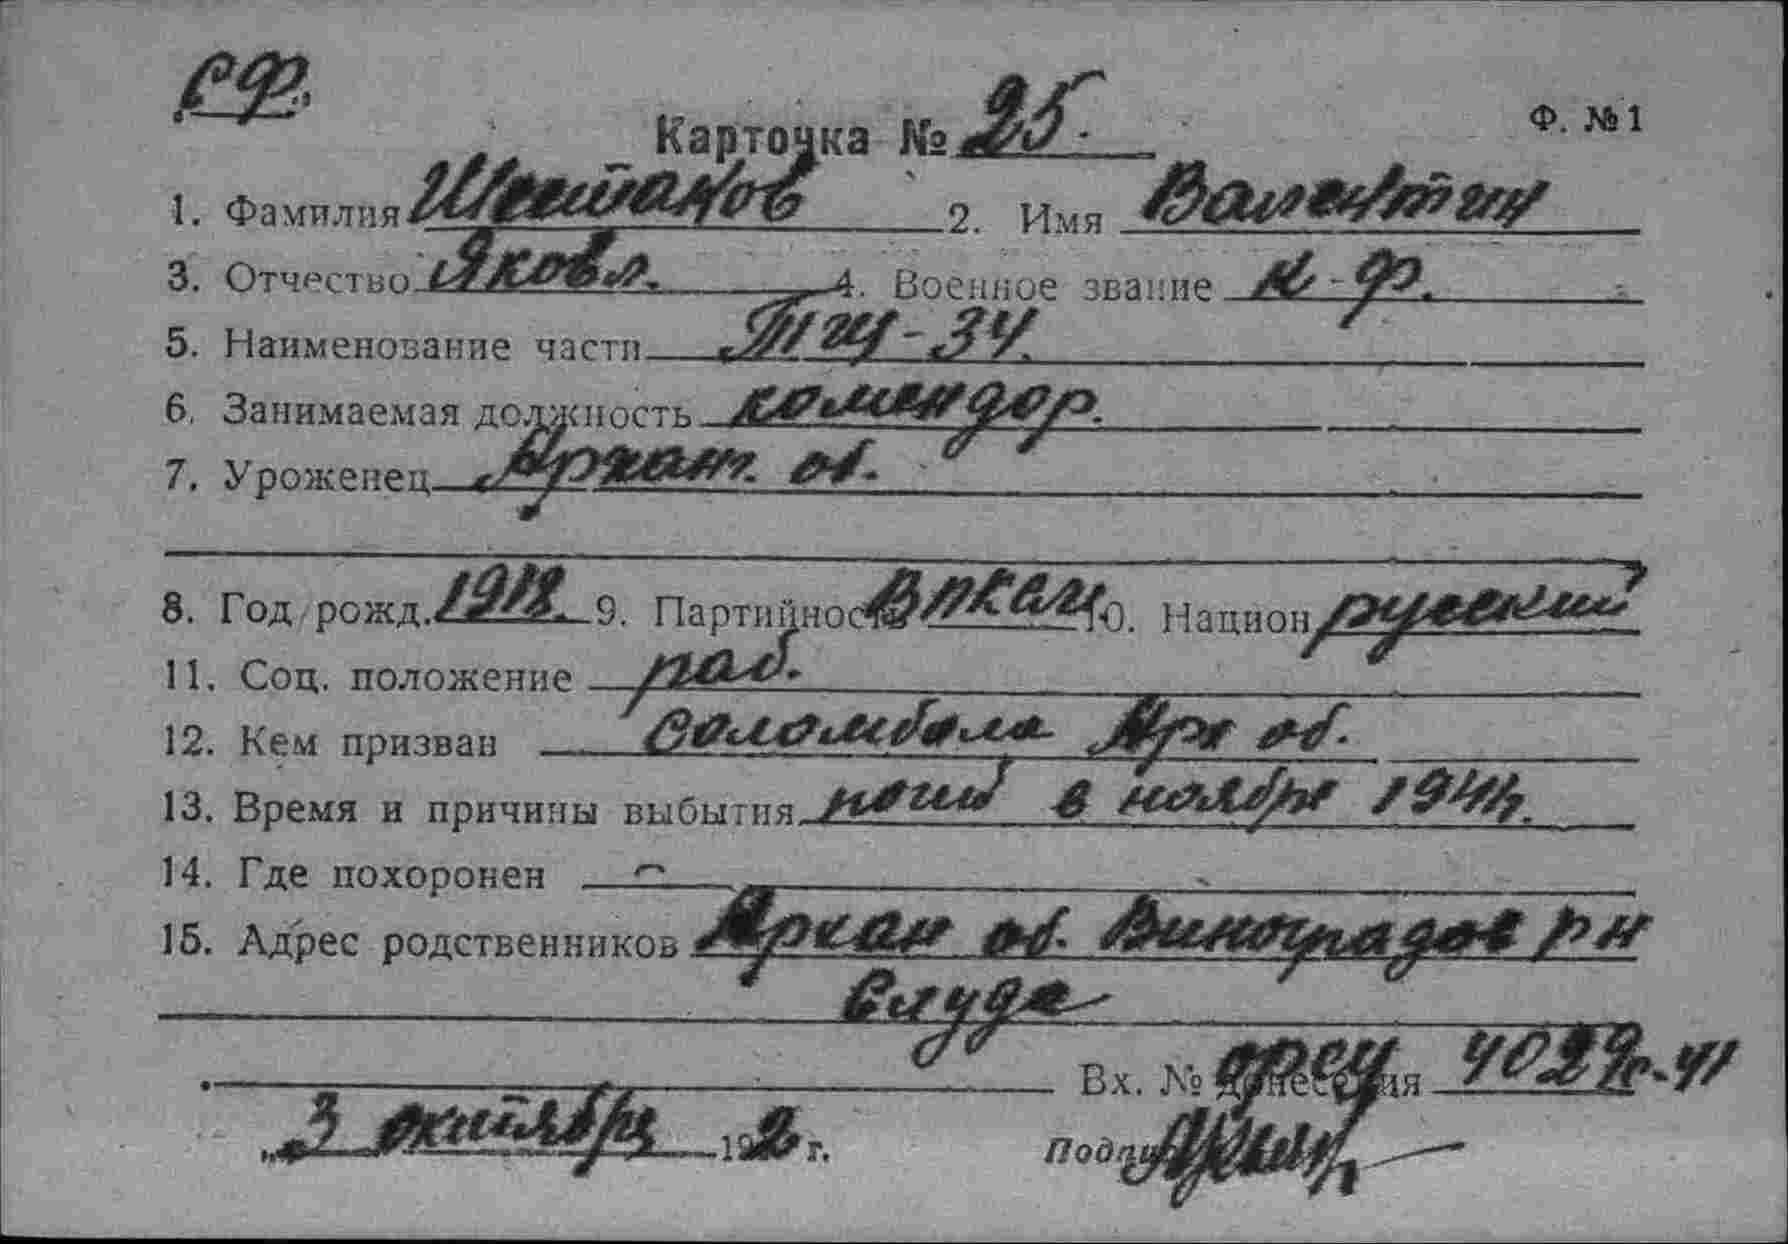 СФ.
Карточка № 25.
Ф. №1
1. Фамилия Шестаков 2. Имя Валентин
3. Отчество Яковл. 4. Военное звание к-ф.
5. Наименование части ТЩ-34.
6. Занимаемая должность комендор.
7. Уроженец Архант. об.
8. Год рожд. 1918. 9. Партийность ВЛКСМ 10. Национ русский
11. Соц. положение раб.
12. Кем призван Соломбала Арх об.
13. Время и причины выбытия погиб в ноябре 1941г.
14. Где похоронен —
15. Адрес родственников Архан об. Виноградов р н
Слуда
Вх. № донесения 4029с-41
„3 октября 1942 г.
Подпись